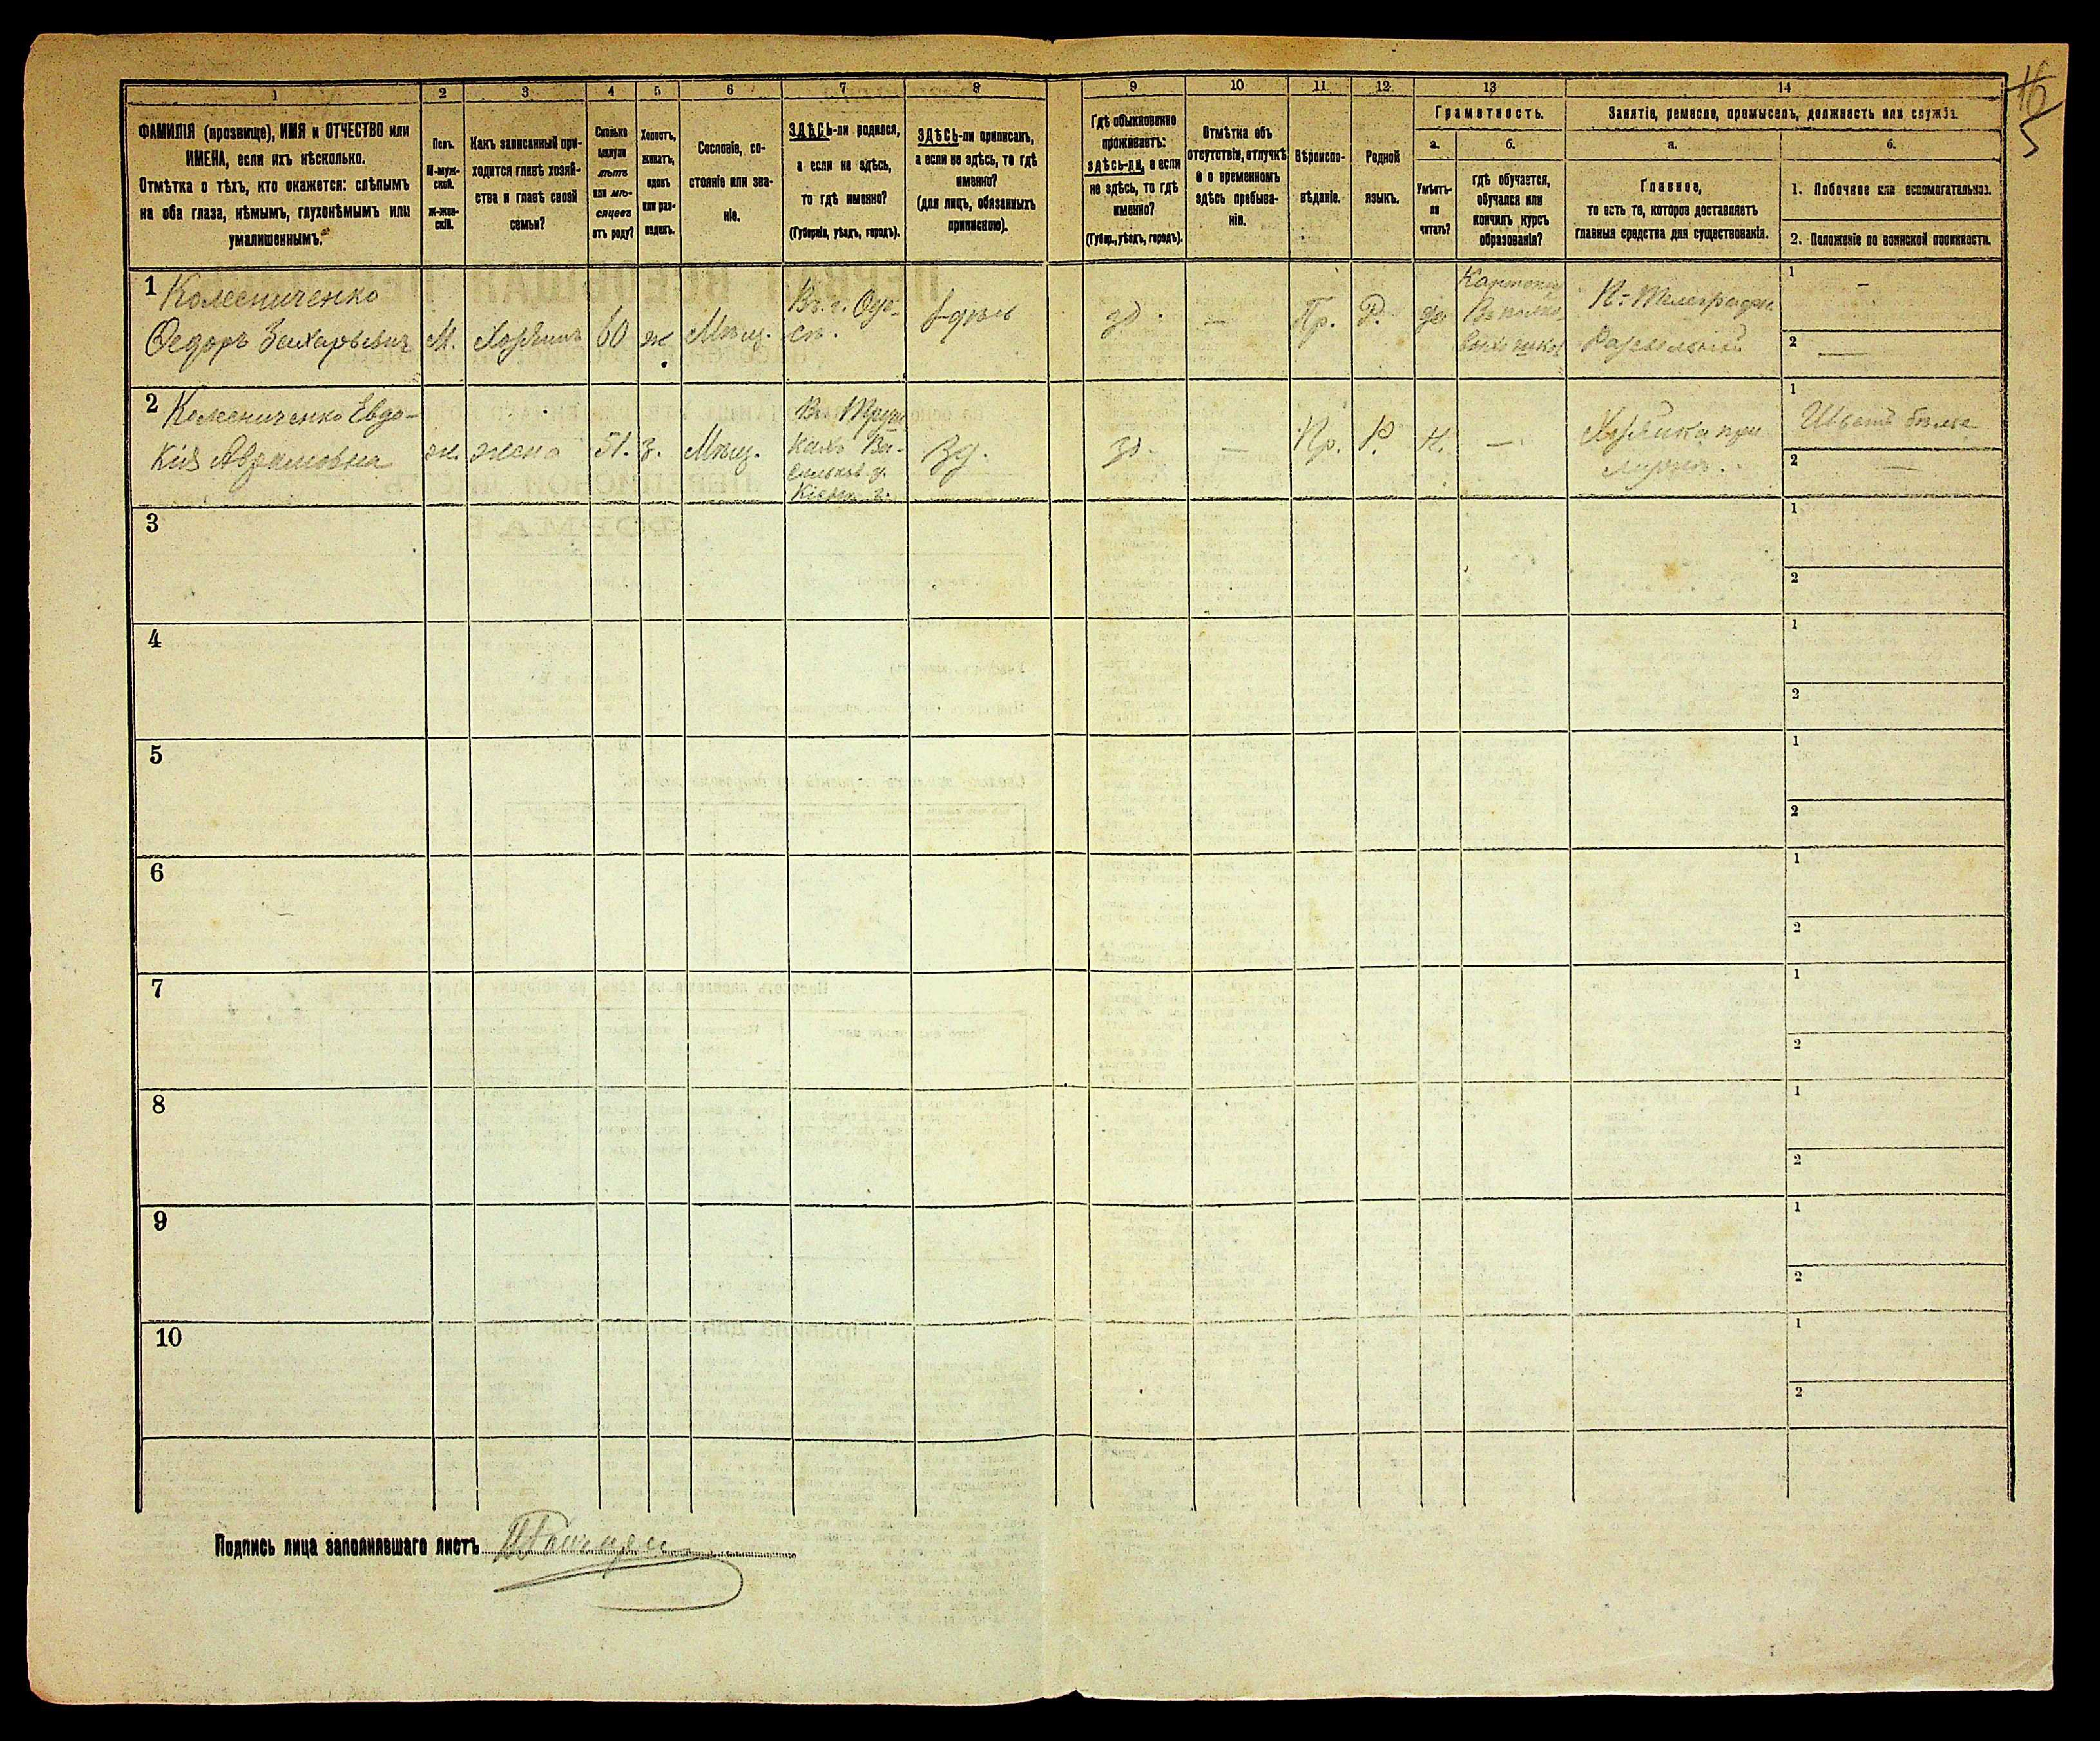 1
2
3
4
5
6
7
8
9
10
11
12
13
14
ФАМИЛІЯ (прозвище), ИМЯ и ОТЧЕСТВО или
ИМЕНА, если ихъ нѣсколько.
Отмѣтка о тѣхъ, кто окажется: слѣпымъ
на оба глаза, нѣмымъ, глухонѣмымъ или
умалишеннымъ.
Полъ.
М-муж-
ской.
Ж-жен-
скій.
Какъ записанный при-
ходится главѣ хозяй-
ства и главѣ своей
семьи?
Сколько
минуло
лѣтъ
или мѣ-
сяцевъ
отъ роду?
Холостъ,
женатъ,
вдовъ
или раз-
веденъ.
Сословіе, со-
стояніе или зва-
ніе.
ЗДѢСЬ-ли родился,
а если не здѣсь,
то гдѣ именно?
(Губернія, уѣздъ, городъ).
ЗДѢСЬ-ли приписанъ,
а если не здѣсь, то гдѣ
именно?
(для лицъ, обязанныхъ
припискою).
Гдѣ обыкновенно
проживаетъ:
здѣсь-ли, а если
не здѣсь, то гдѣ
именно?
(Губер., уѣздъ, городъ).
Отмѣтка объ
отсутствіи, отлучкѣ
и о временномъ
здѣсь пребыва-
ніи.
Вѣроиспо-
вѣданіе.
Родной
языкъ.
Грамотность.
а.
Умѣетъ-
ли
читать?
б.
гдѣ обучается,
обучался или
кончилъ курсъ
образованія?
Занятіе, ремесло, промыселъ, должность или служба.
а.
Главное,
то есть то, которое доставляетъ
главныя средства для существованія.
б.
1. Побочное или вспомогательное.
2. Положеніе по воинской повинности.
1 Колесниченко
Федоръ Захарьевич
М.
Хозяинъ
60
ж
Мѣщ.
Въ г. Оде-
сѣ.
здѣсь
зд.
—
Пр.
Р.
да
1 -
2 —
2 Колесниченко Евдо-
кія Аврамовна
ж.
жена
51.
з.
Мѣщ.
Кіевск. г.
Зд.
зд.
—
Пр.
Р.
Н.
—
Хозяйка при
1 Шьетъ бѣлье
2 —
3
1
2
4
1
2
5
1
2
6
1
2
7
1
2
8
1
2
9
1
2
10
1
2
Подпись лица заполнявшаго листъ